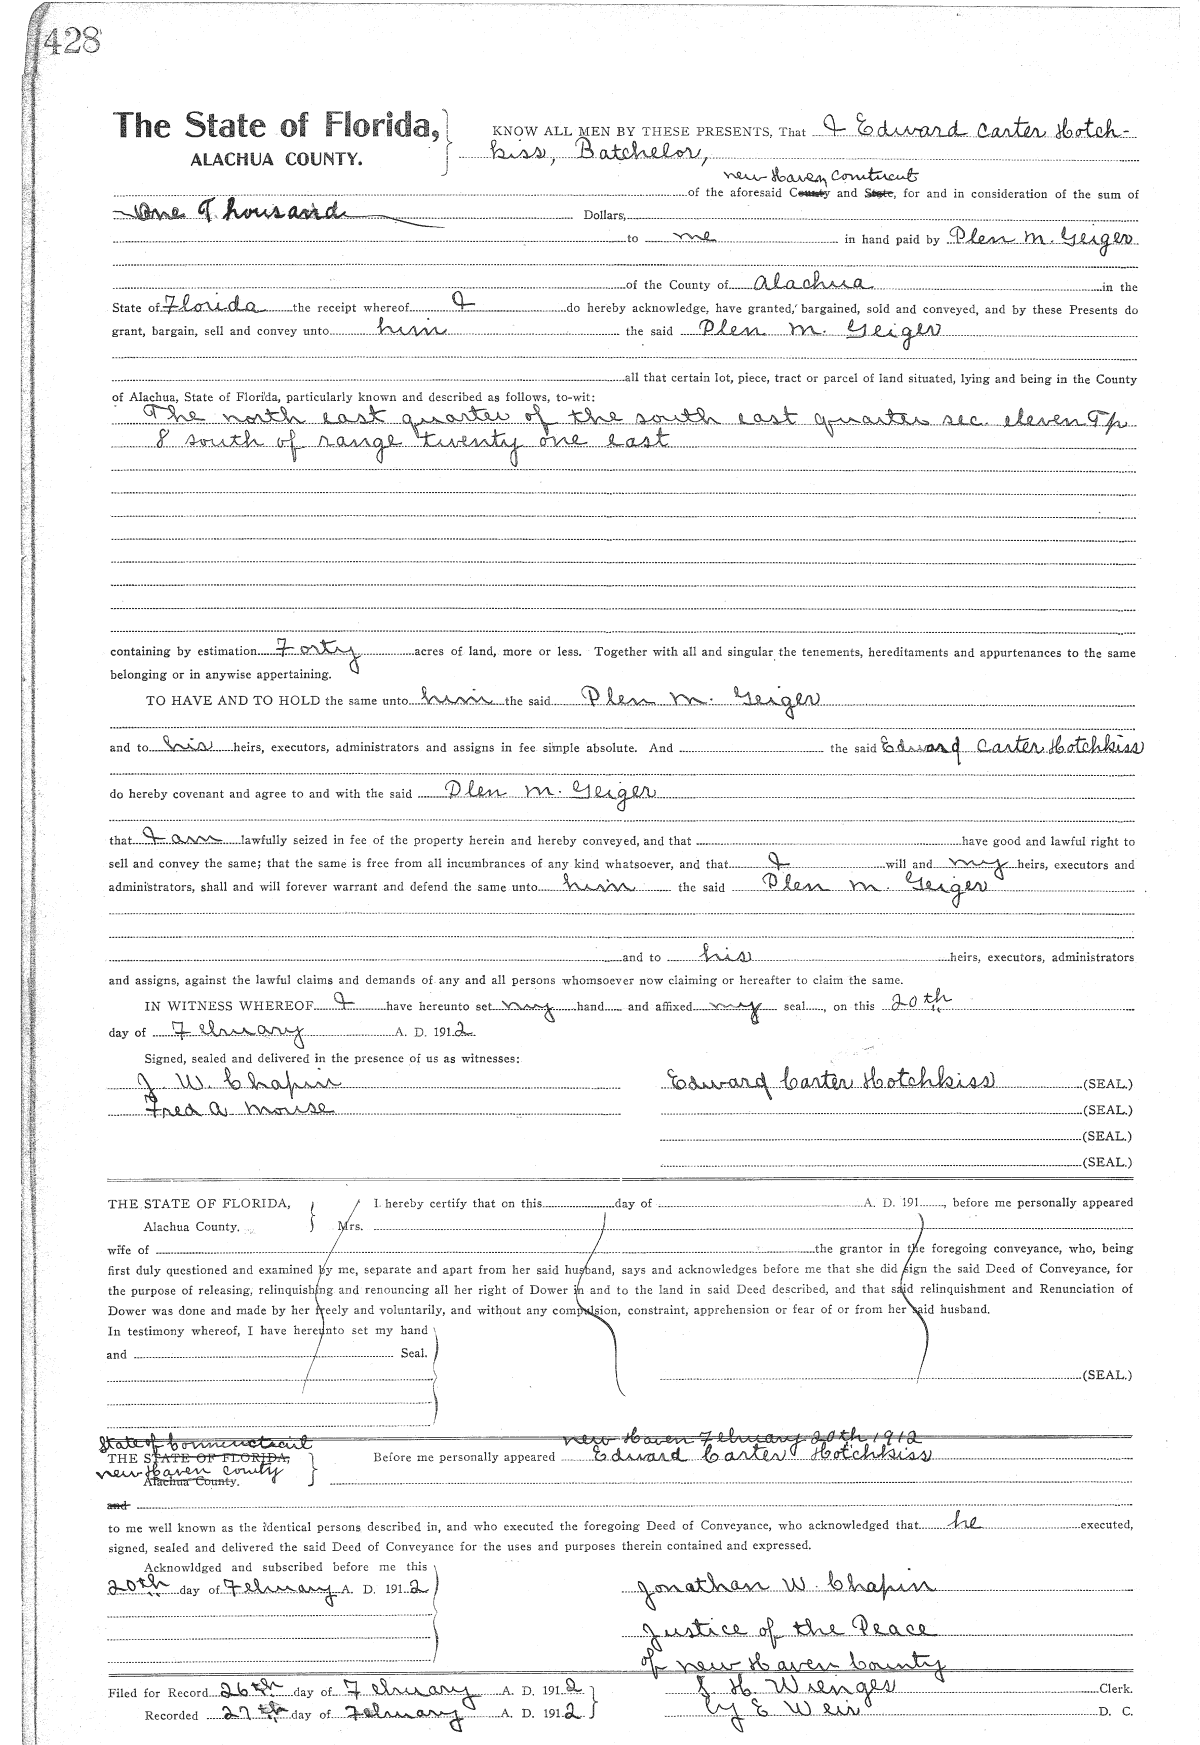 428
The State of Florida, KNOW ALL MEN BY THESE PRESENTS, That I Edward Carter Hotch-
ALACHUA COUNTY. kiss, Batchelor,
new Haven Conticut
of the aforesaid County and State, for and in consideration of the sum of
One Thousand Dollars,
to me in hand paid by Plen M. Geiger
of the County of Alachua in the
State of Florida the receipt whereof I do hereby acknowledge, have granted, bargained, sold and conveyed, and by these Presents do
grant, bargain, sell and convey unto him the said Plen M. Geiger
all that certain lot, piece, tract or parcel of land situated, lying and being in the County
of Alachua, State of Florida, particularly known and described as follows, to-wit:
The north east quarter of the south east quarter sec. eleven Tp
8 south of range twenty one east
containing by estimation Forty acres of land, more or less. Together with all and singular the tenements, hereditaments and appurtenances to the same
belonging or in anywise appertaining.
TO HAVE AND TO HOLD the same unto him the said Plen M. Geiger
and to his heirs, executors, administrators and assigns in fee simple absolute. And the said Edward Carter Hotchkiss
do hereby covenant and agree to and with the said Plen M. Geiger
that I am lawfully seized in fee of the property herein and hereby conveyed, and that have good and lawful right to
sell and convey the same; that the same is free from all incumbrances of any kind whatsoever, and that I will and my heirs, executors and
administrators, shall and will forever warrant and defend the same unto him the said Plen M. Geiger
and to his heirs, executors, administrators
and assigns, against the lawful claims and demands of any and all persons whomsoever now claiming or hereafter to claim the same.
IN WITNESS WHEREOF I have hereunto set my hand and affixed my seal, on this 20th
day of February A. D. 1912
Signed, sealed and delivered in the presence of us as witnesses:
J. W. Chapin Edward Carter Hotchkiss (SEAL.)
Fred A Mouse (SEAL.)
(SEAL.)
(SEAL.)
THE STATE OF FLORIDA, I hereby certify that on this day of A. D. 191 , before me personally appeared
Alachua County. Mrs.
wife of the grantor in the foregoing conveyance, who, being
first duly questioned and examined by me, separate and apart from her said husband, says and acknowledges before me that she did sign the said Deed of Conveyance, for
the purpose of releasing, relinquishing and renouncing all her right of Dower in and to the land in said Deed described, and that said relinquishment and Renunciation of
Dower was done and made by her freely and voluntarily, and without any compulsion, constraint, apprehension or fear of or from her said husband.
In testimony whereof, I have hereunto set my hand
and Seal.
(SEAL.)
State of Connecticut new Haven February 20th 1912
THE STATE OF FLORIDA, Before me personally appeared Edward Carter Hotchkiss
new Haven County
Alachua County.
and
to me well known as the identical persons described in, and who executed the foregoing Deed of Conveyance, who acknowledged that he executed,
signed, sealed and delivered the said Deed of Conveyance for the uses and purposes therein contained and expressed.
Acknowldged and subscribed before me this
20th day of February A. D. 1912 Jonathan W. Chapin
Justice of the Peace
of new Haven County
Filed for Record 26th day of February A. D. 1912 S. H. Wienges Clerk.
Recorded 27th day of February A. D. 1912 by E Weir D. C.